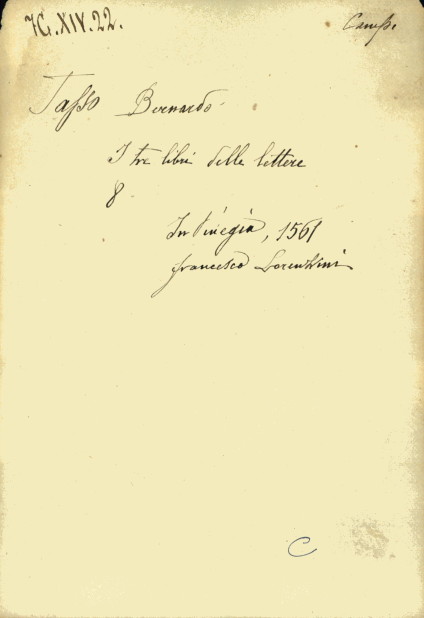 7G.XIV.22.
Camp.
Tasso Bernardo
I tre libri delle lettere
8
In Vinegia, 1561
francesco Lorenzini
C